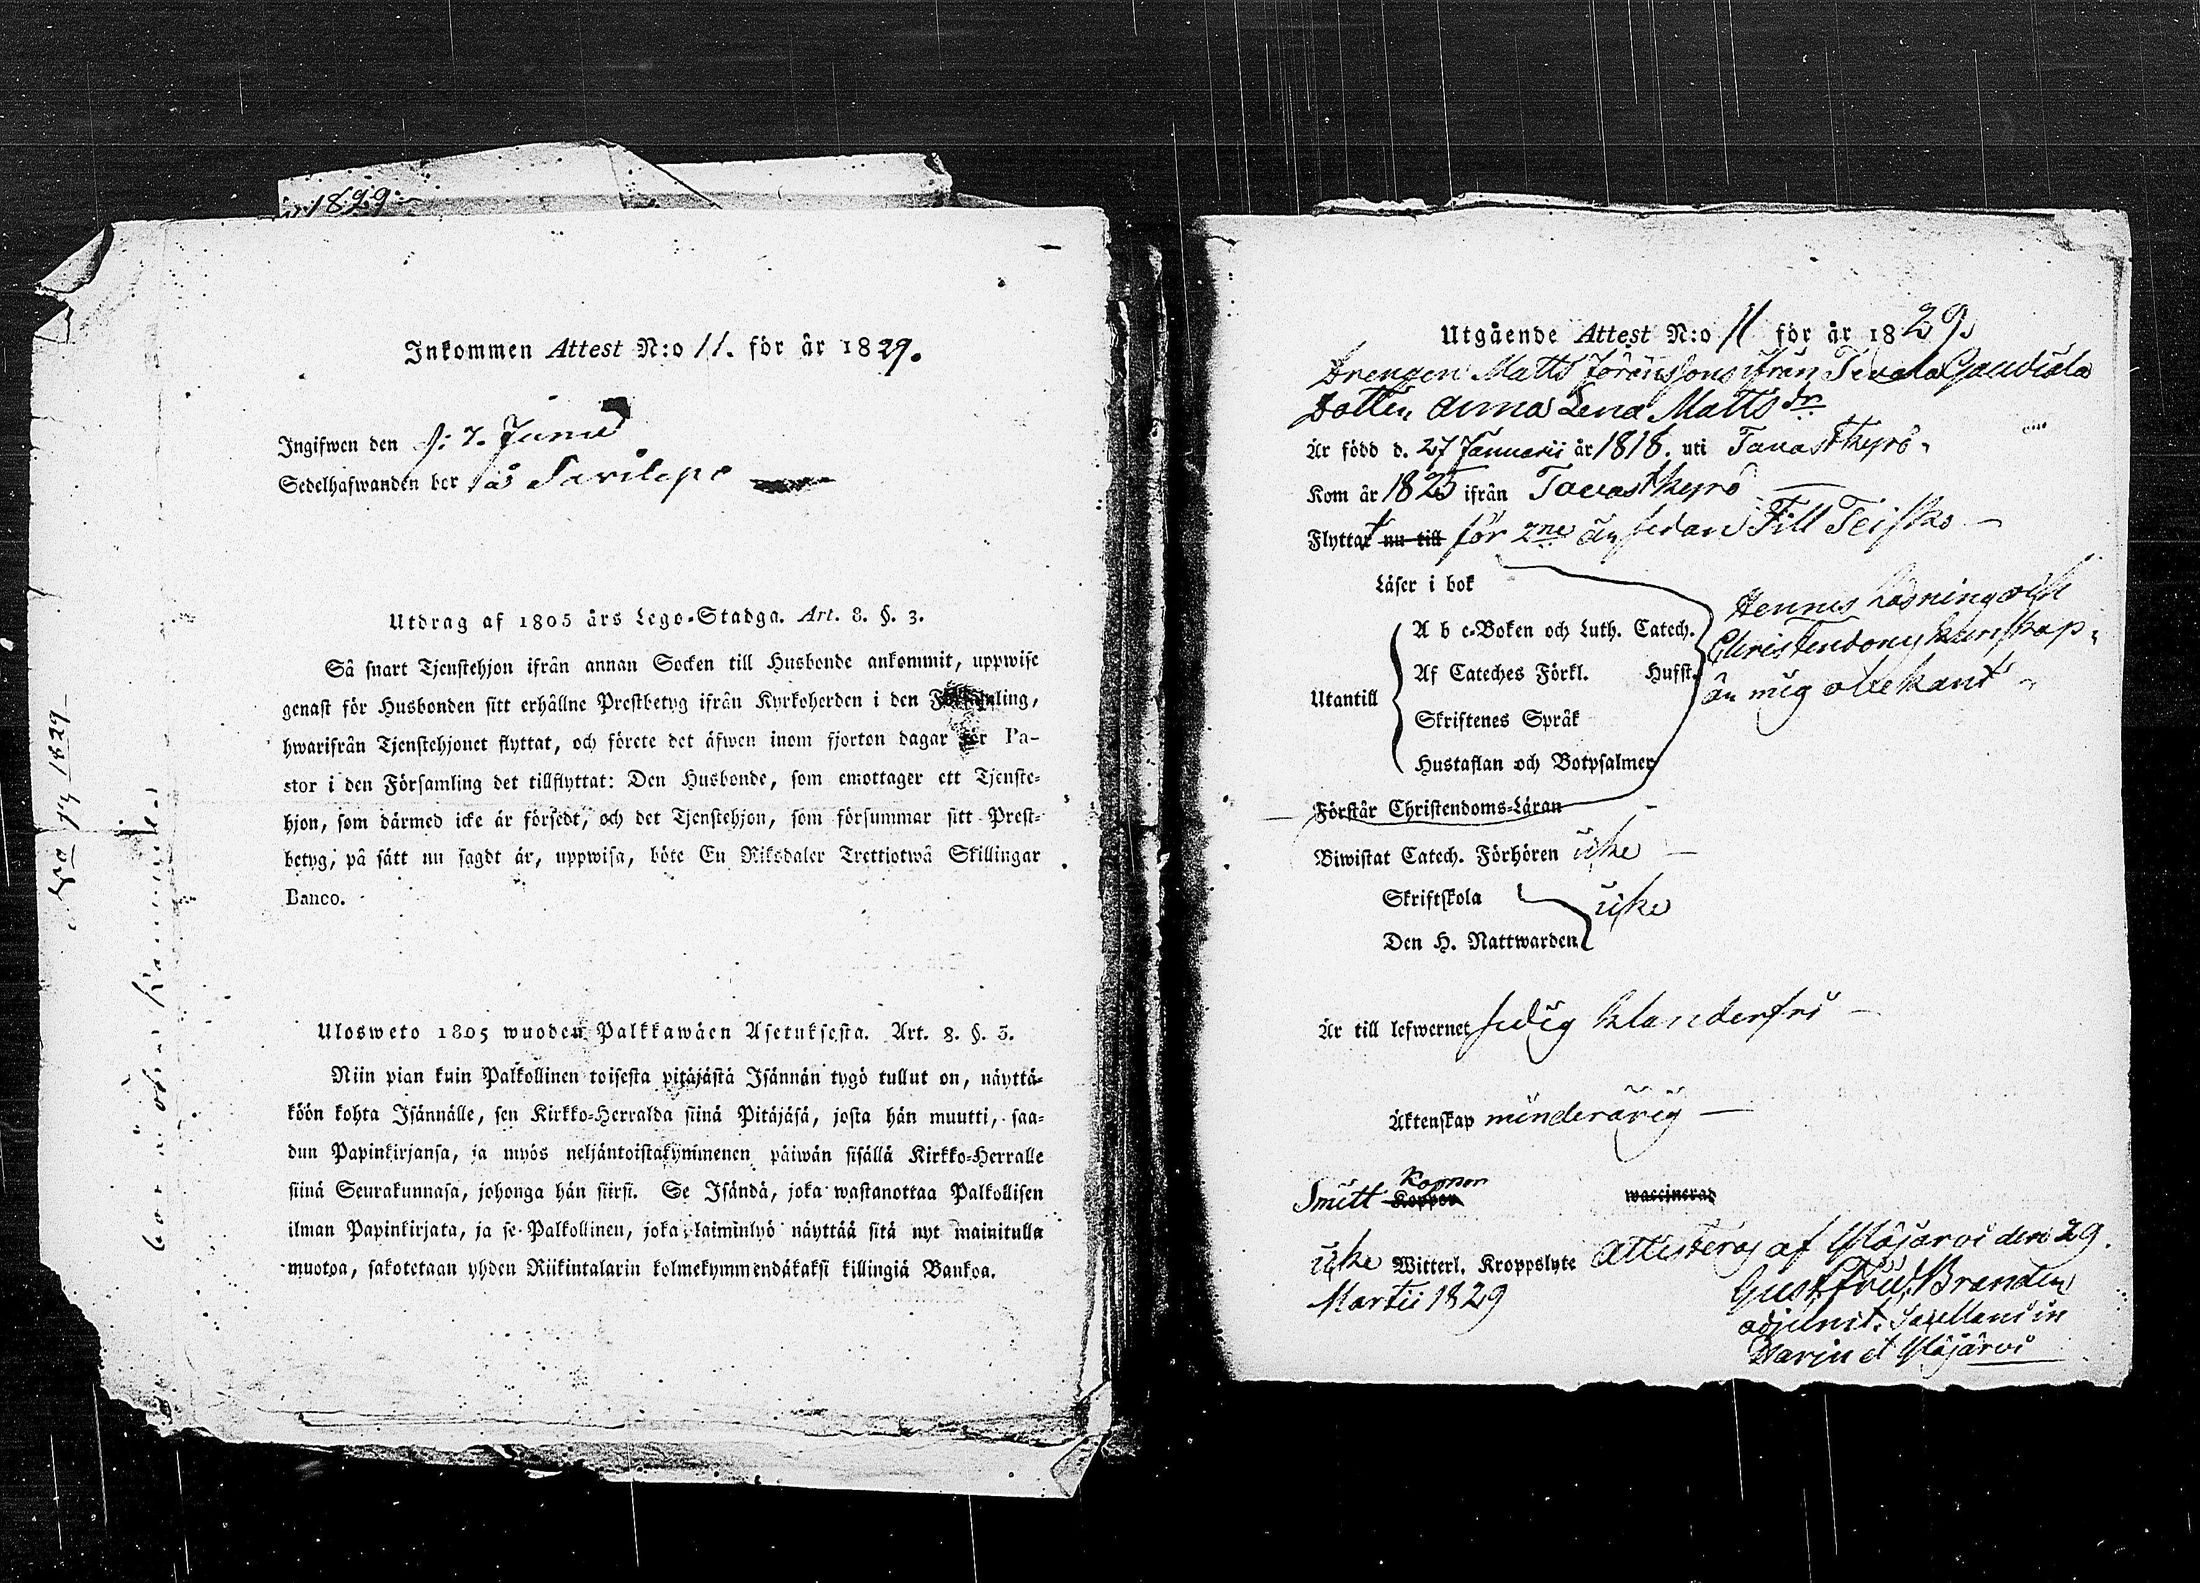 1829
Inkommen Attest N:o 11. för år 1829.
Ingifwen den 7. Junii
Sedelhafwanden bor på Savilepo
Utdrag af 1805 års Lego-Stadga. Art. 8. §. 3.
Så snart Tjenstehjon ifrån annan Socken till Husbonde ankommit, uppwise
genast för Husbonden sitt erhållne Prestbetyg ifrån Kyrkoherden i den Församling,
hwarifrån Tjenstehjonet flyttat, och förete det äfwen inom fjorton dagar för Pa-
stor i den Församling det tillflyttat: Den Husbonde, som emottager ett Tjenste-
hjon, som därmed icke är försedt, och det Tjenstehjon, som försummar sitt Prest-
betyg, på sätt nu sagdt är, uppwisa, böte En Riksdaler Trettjotwå Skillingar
Banco.
Ulosweto 1805 wuoden Palkkawäen Asetuksesta. Art. 8. §. 3.
Niin pian kuin Palkollinen toisesta pitäjästä Isännän tygö tullut on, näyttä-
köön kohta Isännälle, sen Kirkko-Herralda siinä Pitäjäsä, josta hän muutti, saa-
dun Papinkirjansa, ja myös neljäntoistakymmenen päiwän sisällä Kirkko-Herralle
siinä Seurakunnasa, johonga hän siirsi. Se Isändä, joka wastanottaa Palkollisen
ilman Papinkirjata, ja se Palkollinen, joka laiminlyö näyttää sitä nyt mainitulla
muotoa, sakotetaan yhden Riikintalarin kolmekymmendäkaksi killingiä Bankoa.
1829
Utgående Attest N:o 11 för år 1829.
Drengen Matts Jöransons ifrån
Dotter Anna Lena Matts dr
Är född d. 27 Januarii år 1818. uti Tavastkyro
Kom år 1825 ifrån Tavastkyro
Flyttat nu till för 2ne år sedan Till Teisko
Läser i bok
A b c-Boken och Luth. Catech.
Af Cateches Förkl. Husst.
Utantill
Skriftenes Språk
Hustaflan och Botpsalmer
Hennes läsning och
Christendoms kunskap
är mig obekant
Förstår Christendoms-Läran
Biwistat Catech. Förhören icke
Skriftskola
icke
Den H. Nattwarden
Är till lefwernet sedig klanderfri
Äktenskap minderårig
Koppor
Smitt Koppor waccinerad
icke Witterl. Kroppslyte Attesteras af Ylöjärvi den 29.
Martii 1829
Gust. Frid. Brander
adjunct. Sacellani in
Harju et Ylöjärvi